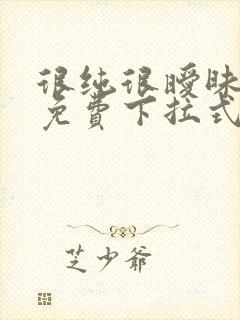 很纯很暧昧
免费下拉式
芝少爷